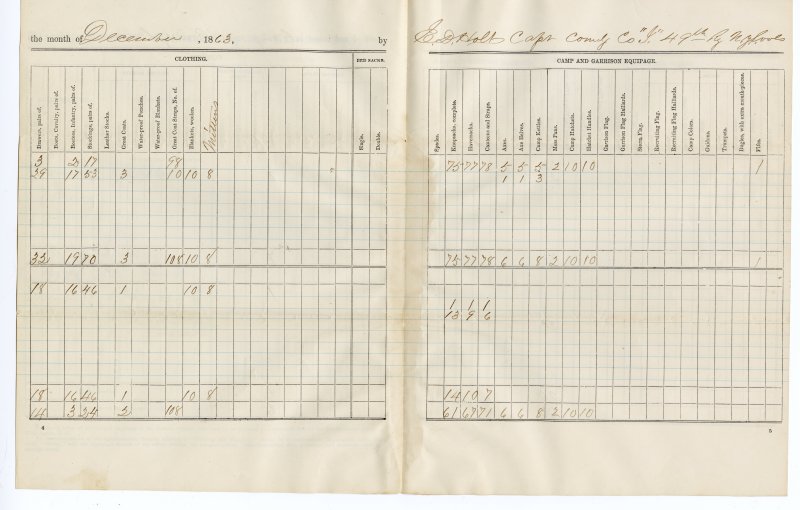 the month of December, 1863. by E. D. Holt Capt Comdg Co "I" 49th Rg N Y Vols
CLOTHING. BED SACKS. CAMP AND GARRISON EQUIPAGE.
Drawers, pairs of. Boots, Cavalry, pairs of. Bootees, Infantry, pairs of. Stockings, pairs of. Leather Stocks. Great Coats. Water-proof Ponchos. Water-proof Blankets. Great Coat Straps, No. of. Blankets, woolen. Mittens Single. Double. Spades. Knapsacks, complete. Haversacks. Canteens and Straps. Axes. Axe Helves. Camp Kettles. Mess Pans. Camp Hatchets. Hatchet Handles. Garrison Flag. Garrison Flag Halliards. Storm Flag. Recruiting Flag. Recruiting Flag Halliards. Camp Colors. Guidons. Trumpets. Bugles, with extra mouth-pieces. Fifes.
3 2 17 98 75 77 78 5 5 5 2 10 10 1
29 17 53 3 10 10 8 1 1 3
32 19 70 3 108 10 8 75 77 78 6 6 8 2 10 10 1
18 16 46 1 10 8
1 1 1
13 9 6
18 16 46 1 10 8 14 10 7
14 3 24 2 108 61 67 71 6 6 8 2 10 10
4 5